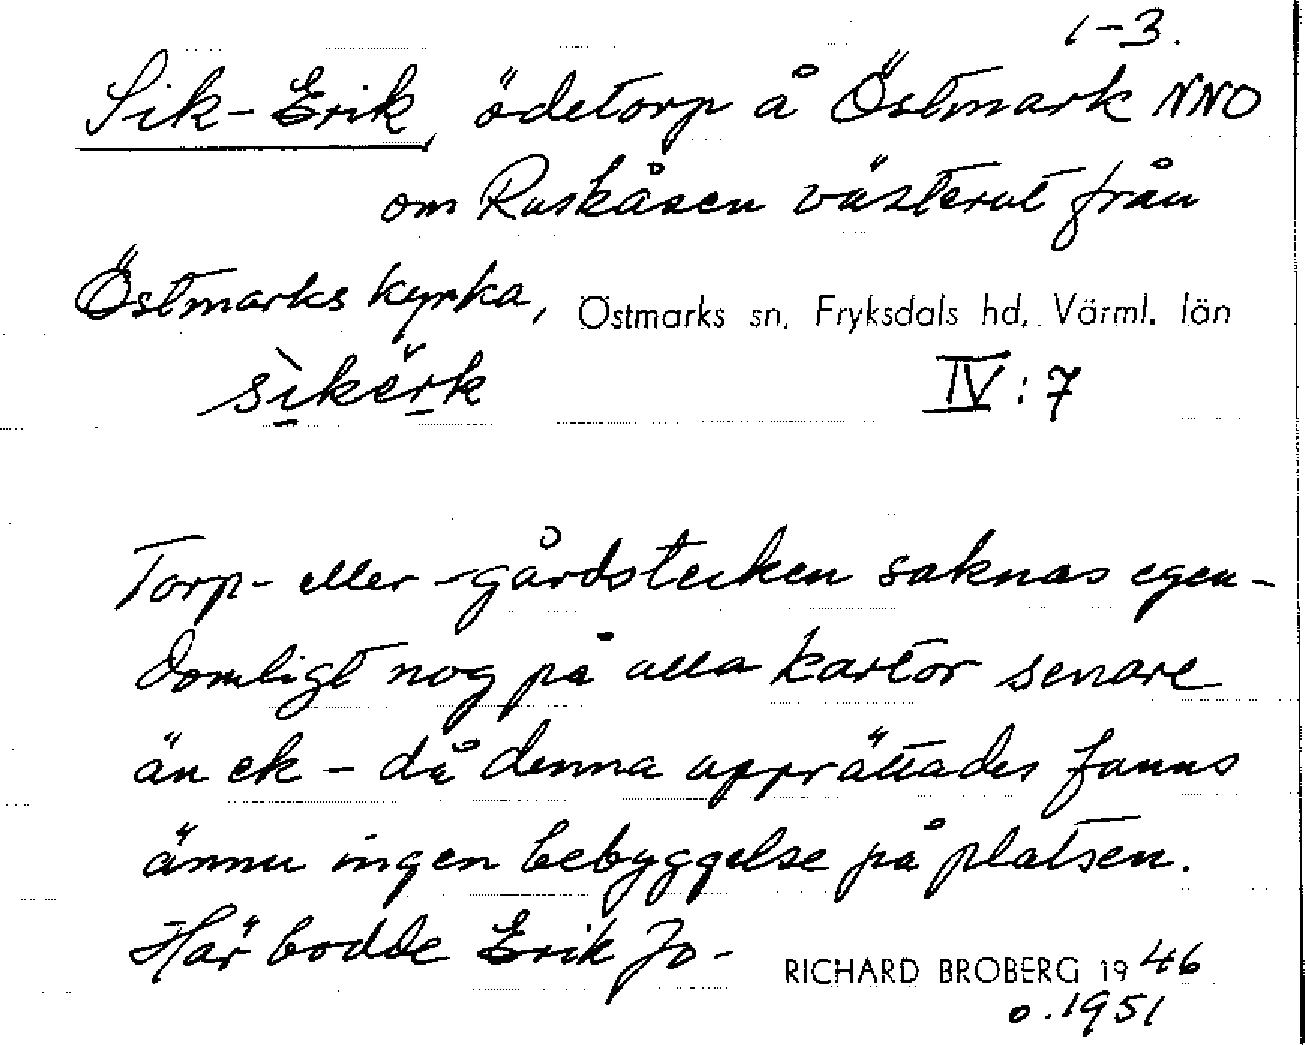 1-3.
Sik-Erik, ödetorp å Östmark NNO
om Ruskåsen västerut från
Östmarks kyrka, Östmarks sn, Fryksdals hd, Värml. län
IV:7
Torp- eller -gårdstecken saknas egen-
domligt nog på alla kartor senare
än ek - då denna upprättades fanns
ännu ingen bebyggelse på platsen.
Här bodde Erik Jo-
RICHARD BROBERG 1946
o. 1951